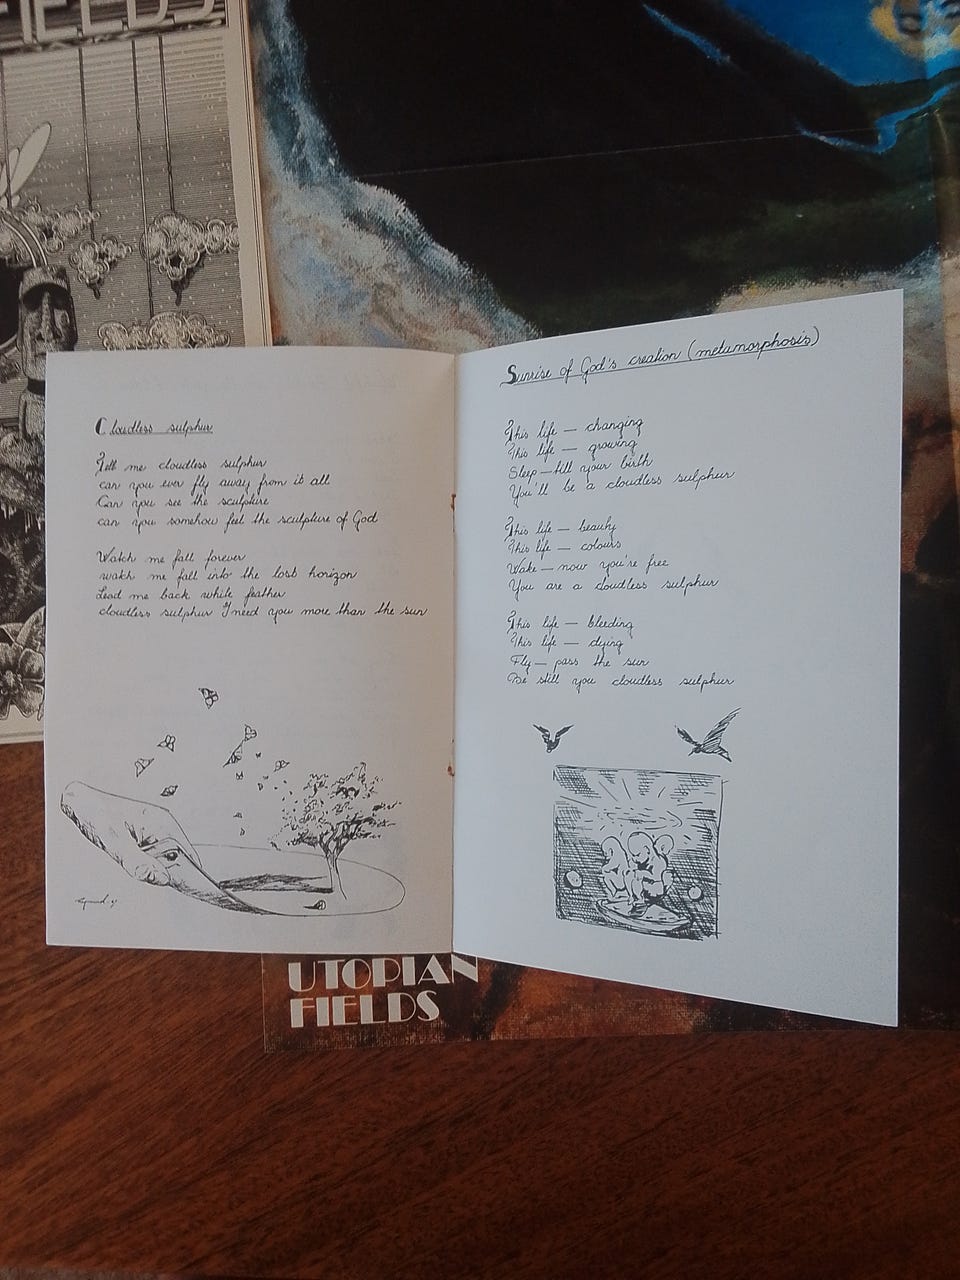 FIELDS
Cloudless sulphur
Tell me cloudless sulphur
can you ever fly away from it all
Can you see the sculpture
can you somehow feel the sculpture of God
Watch me fall forever
watch me fall into the lost horizon
Lead me back white feather
cloudless sulphur I need you more than the sun
Sunrise of God's creation (metamorphosis)
This life — changing
This life — growing
Sleep — till your birth
You'll be a cloudless sulphur
This life — beauty
This life — colours
Wake — now you're free
You are a cloudless sulphur
This life — bleeding
This life — dying
Fly — pass the sun
Be still you cloudless sulphur
UTOPIAN
FIELDS